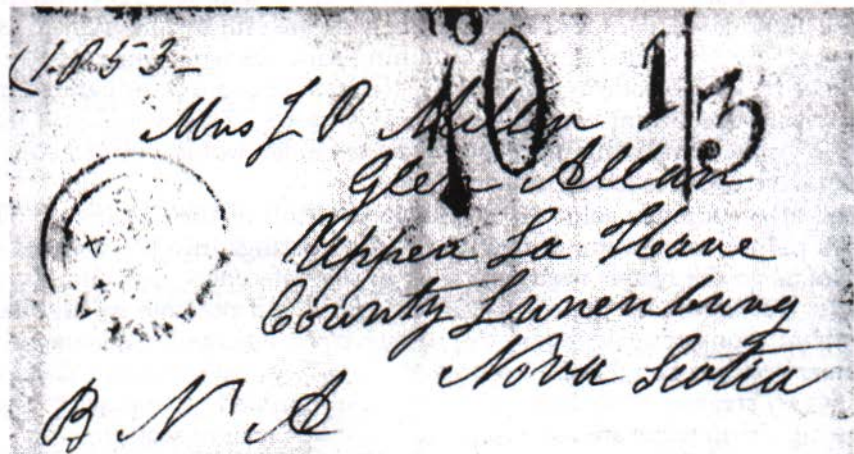 (1853-
10 1/3
Mrs J P Miller
Glen Allan
Upper La Have
County Lunenburg
Nova Scotia
B N A